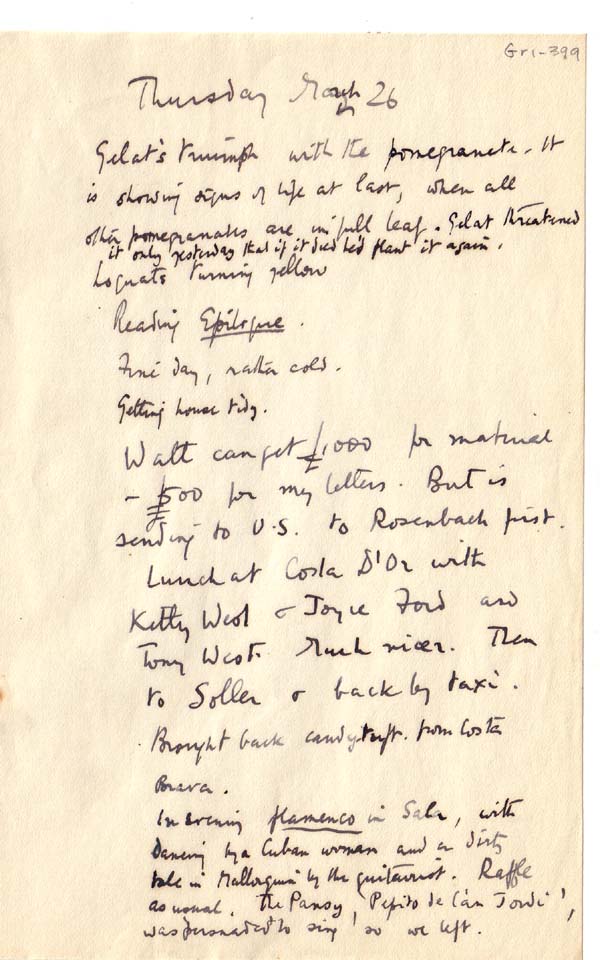 Gri-399
Thursday March 26
Gelat's triumph with the pomegranate. It
is showing signs of life at last, when all
other pomegranates are in full leaf. Gelat threatened
it only yesterday that if it died he'd plant it again.
Loquats turning yellow
Reading Epilogue.
Fine day, rather cold.
Getting house tidy.
Watt can get £1000 for material
- £500 for my letters. But is
sending to U.S. to Rosenbach first.
Lunch at Costa D'Or with
Ketty West & Joyce Ford and
Tony West. Much nicer. Then
to Soller & back by taxi.
Brought back candytuft from Costa
Brava.
In evening flamenco in Sala, with
Dancing by a Cuban woman and a dirty
tale in Mallorquin by the guitarrist. Raffle
as usual. The Pansy, 'Pepito de C'an Jordi',
was persuaded to sing so we left.